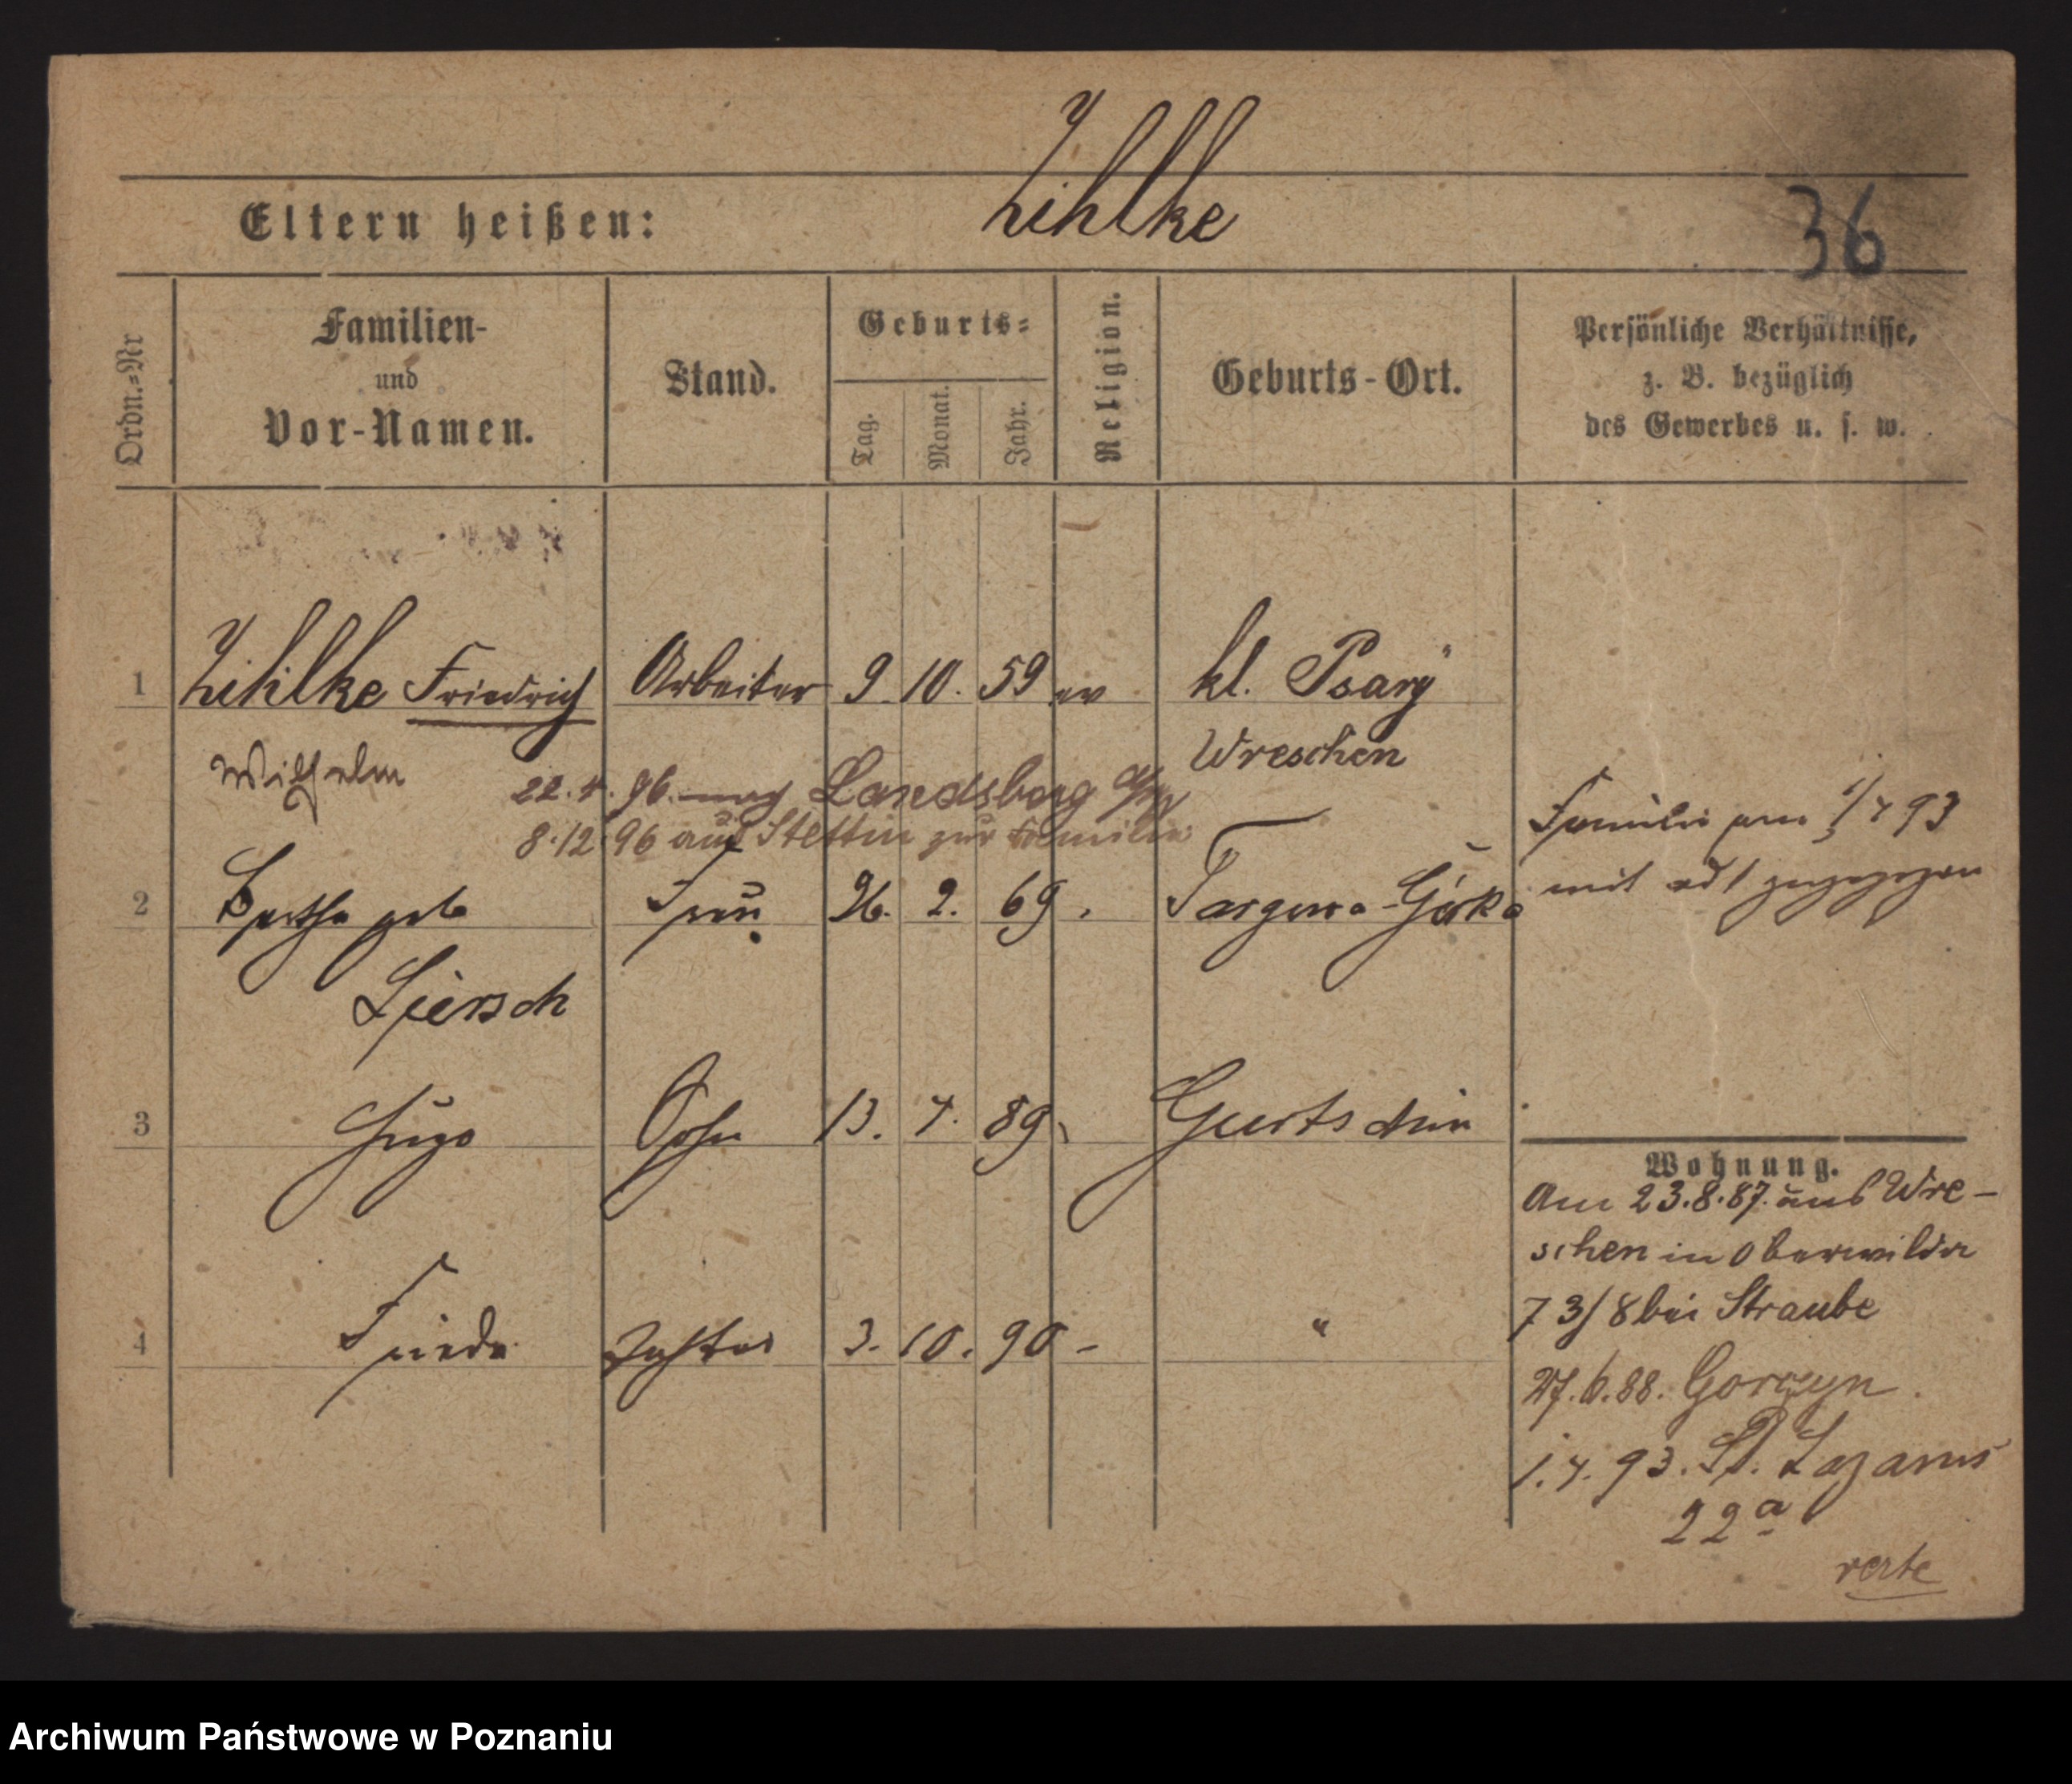 Zihlke
Eltern heißen:
36
Ordn.=Nr
Familien-
und
Vor-Namen.
Stand.
Geburts=
Tag.
Monat.
Jahr.
Religion.
Geburts-Ort.
Persönliche Verhältnisse,
z. B. bezüglich
des Gewerbes u. s. w.
1 Zihlke Friedrich Arbeiter 9. 10. 59 ev kl. Psary
Wilhelm
Wreschen
22. 4. 96. nach Landsberg
8.12.96 aus Stettin zur Familie
Familie am 1/4 93
mit zugezogen
2 Bertha geb Frau 26. 2. 69. Targowa-Górka
Liersch
3 Hugo Sohn 13. 4. 89. Gurtschin
4 Frieda Tochter 3. 10. 90 - "
Wohnung.
Am 23.8.87. aus Wre-
schen in Oberwilda
73/8 bei Straube
27.6.88. Gorczyn.
1.4.93. St. Lazarus
22a
verte
Archiwum Państwowe w Poznaniu